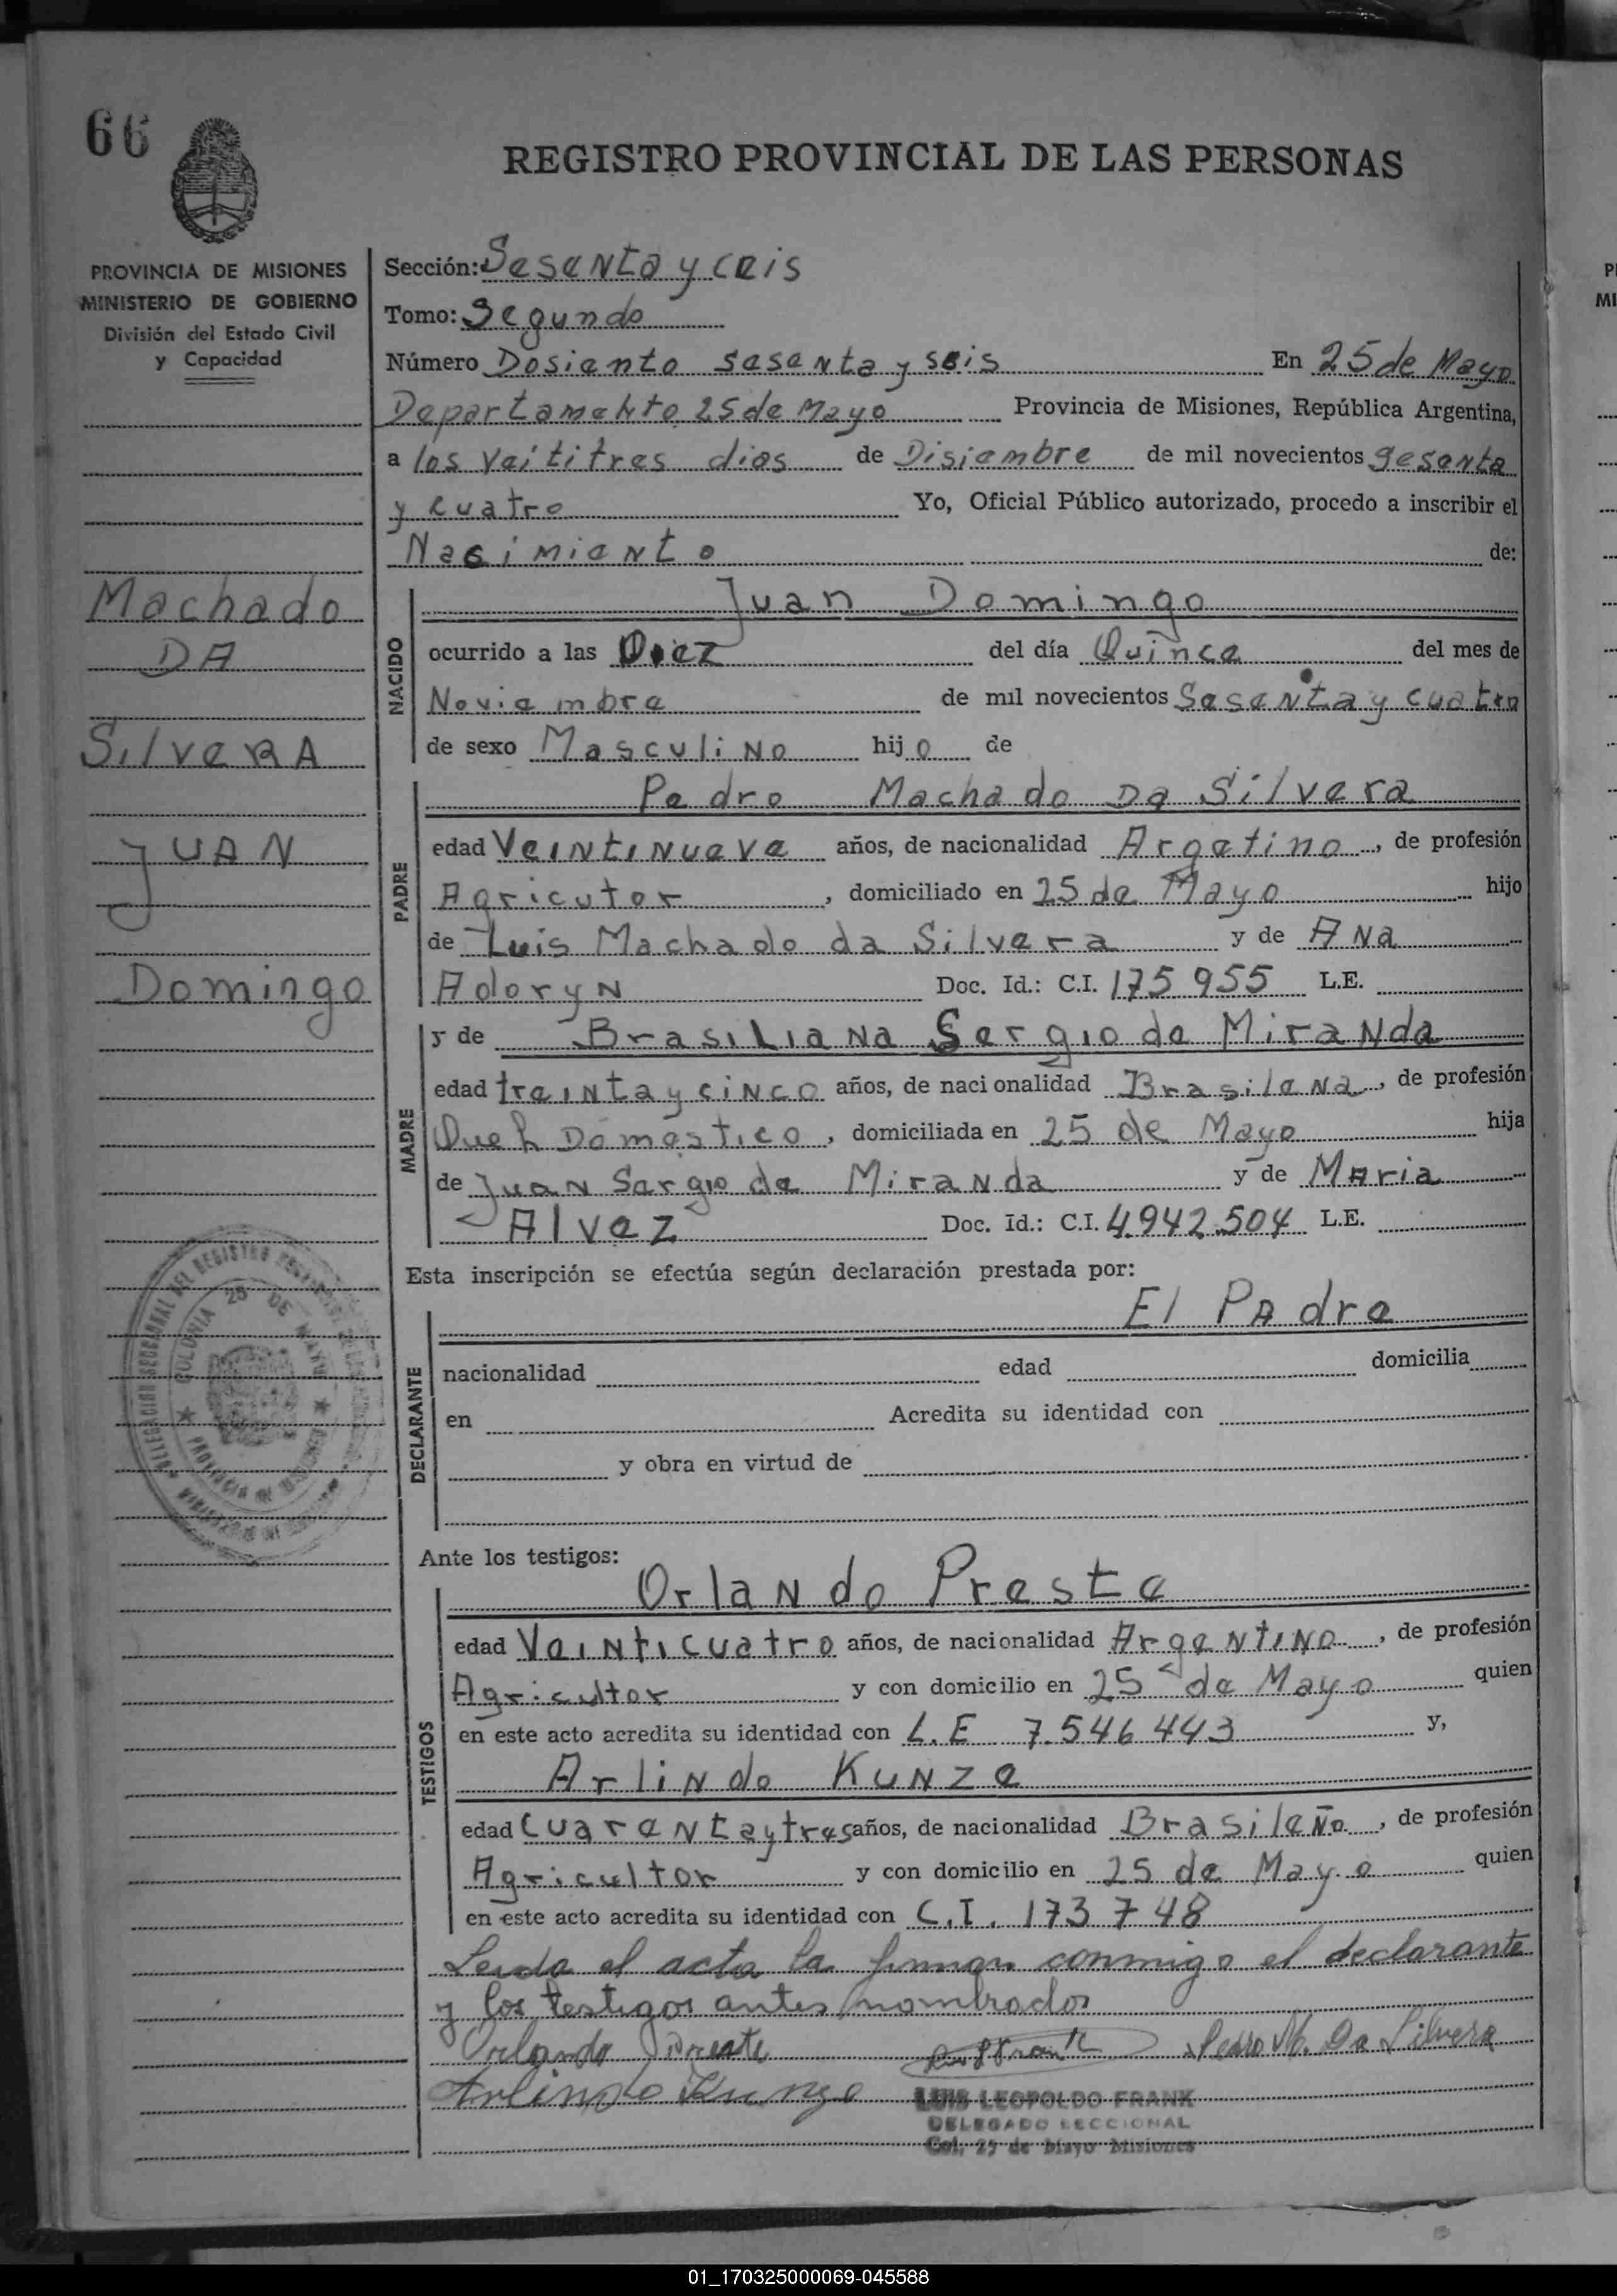 66
REGISTRO PROVINCIAL DE LAS PERSONAS
PROVINCIA DE MISIONES
MINISTERIO DE GOBIERNO
División del Estado Civil
y Capacidad
Machado
DA
SilveRA
JUAN
Domingo
Sección: Sesenta y ceis
Tomo: Segundo
Número Dosiento sesenta y seis En 25 de Mayo
Departamento 25 de Mayo Provincia de Misiones, República Argentina,
a los veititres dias de Disiembre de mil novecientos sesenta
y cuatro Yo, Oficial Público autorizado, procedo a inscribir el
Nacimiento de:
NACIDO
Juan Domingo
ocurrido a las Diez del día Quince del mes de
Noviembre de mil novecientos Sesenta y cuatro
de sexo Masculino hijo de
PADRE
Pedro Machado Da Silvera
edad Veintinueve años, de nacionalidad Argetino, de profesión
Agricutor, domiciliado en 25 de Mayo hijo
de Luis Machado da Silvera y de Ana
Adoryn Doc. Id.: C.I. 175 955 L.E.
MADRE
y de Brasiliana Sergio de Miranda
edad treinta y cinco años, de nacionalidad Brasilena, de profesión
Queh Domestico, domiciliada en 25 de Mayo hija
de Juan Sergio de Miranda y de Maria
Alvez Doc. Id.: C.I. 4.942.504 L.E.
Esta inscripción se efectúa según declaración prestada por:
DECLARANTE
El Padre
nacionalidad edad domicilia
en Acredita su identidad con
y obra en virtud de
Ante los testigos:
TESTIGOS
Orlando Preste
edad Veinticuatro años, de nacionalidad Argentino, de profesión
Agricultor y con domicilio en 25 de Mayo quien
en este acto acredita su identidad con L.E 7.546 443 y,
Arlindo Kunze
edad Cuarenta y tres años, de nacionalidad Brasileño, de profesión
Agricultor y con domicilio en 25 de Mayo quien
en este acto acredita su identidad con C.I. 173 748
Leida el acta la firman conmigo el declarante
y los testigos antes nombrados
Orlando Preste Pedro M. Da Silvera
Arlindo Kunze
LUIS LEOPOLDO FRANK
DELEGADO SECCIONAL
Col. 25 de Mayo Misiones
COLONIA 25 DE MAYO
PROVINCIA DE MISIONES
01_170325000069-045588